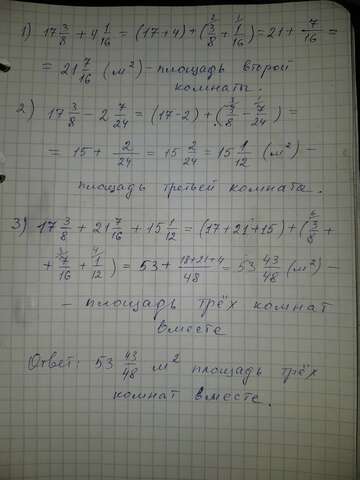 1) 17 3/8 + 4 1/16 = (17+4) + (3/8 ² + 1/16 ¹) = 21 + 7/16 =
= 21 7/16 (м²) - площадь второй
комнаты.
2) 17 3/8 - 2 7/24 = (17-2) + (3/8 ³ - 7/24 ¹) =
= 15 + 2/24 = 15 2/24 = 15 1/12 (м²) -
площадь третьей комната.
3) 17 3/8 + 21 7/16 + 15 1/12 = (17+21+15) + (3/8 ⁶ +
+ 7/16 ³ + 1/12 ⁴) = 53 + 18+21+4/48 = 53 43/48 (м²) -
- площадь трёх комнат
вместе
Ответ: 53 43/48 м² площадь трёх
комнат вместе.